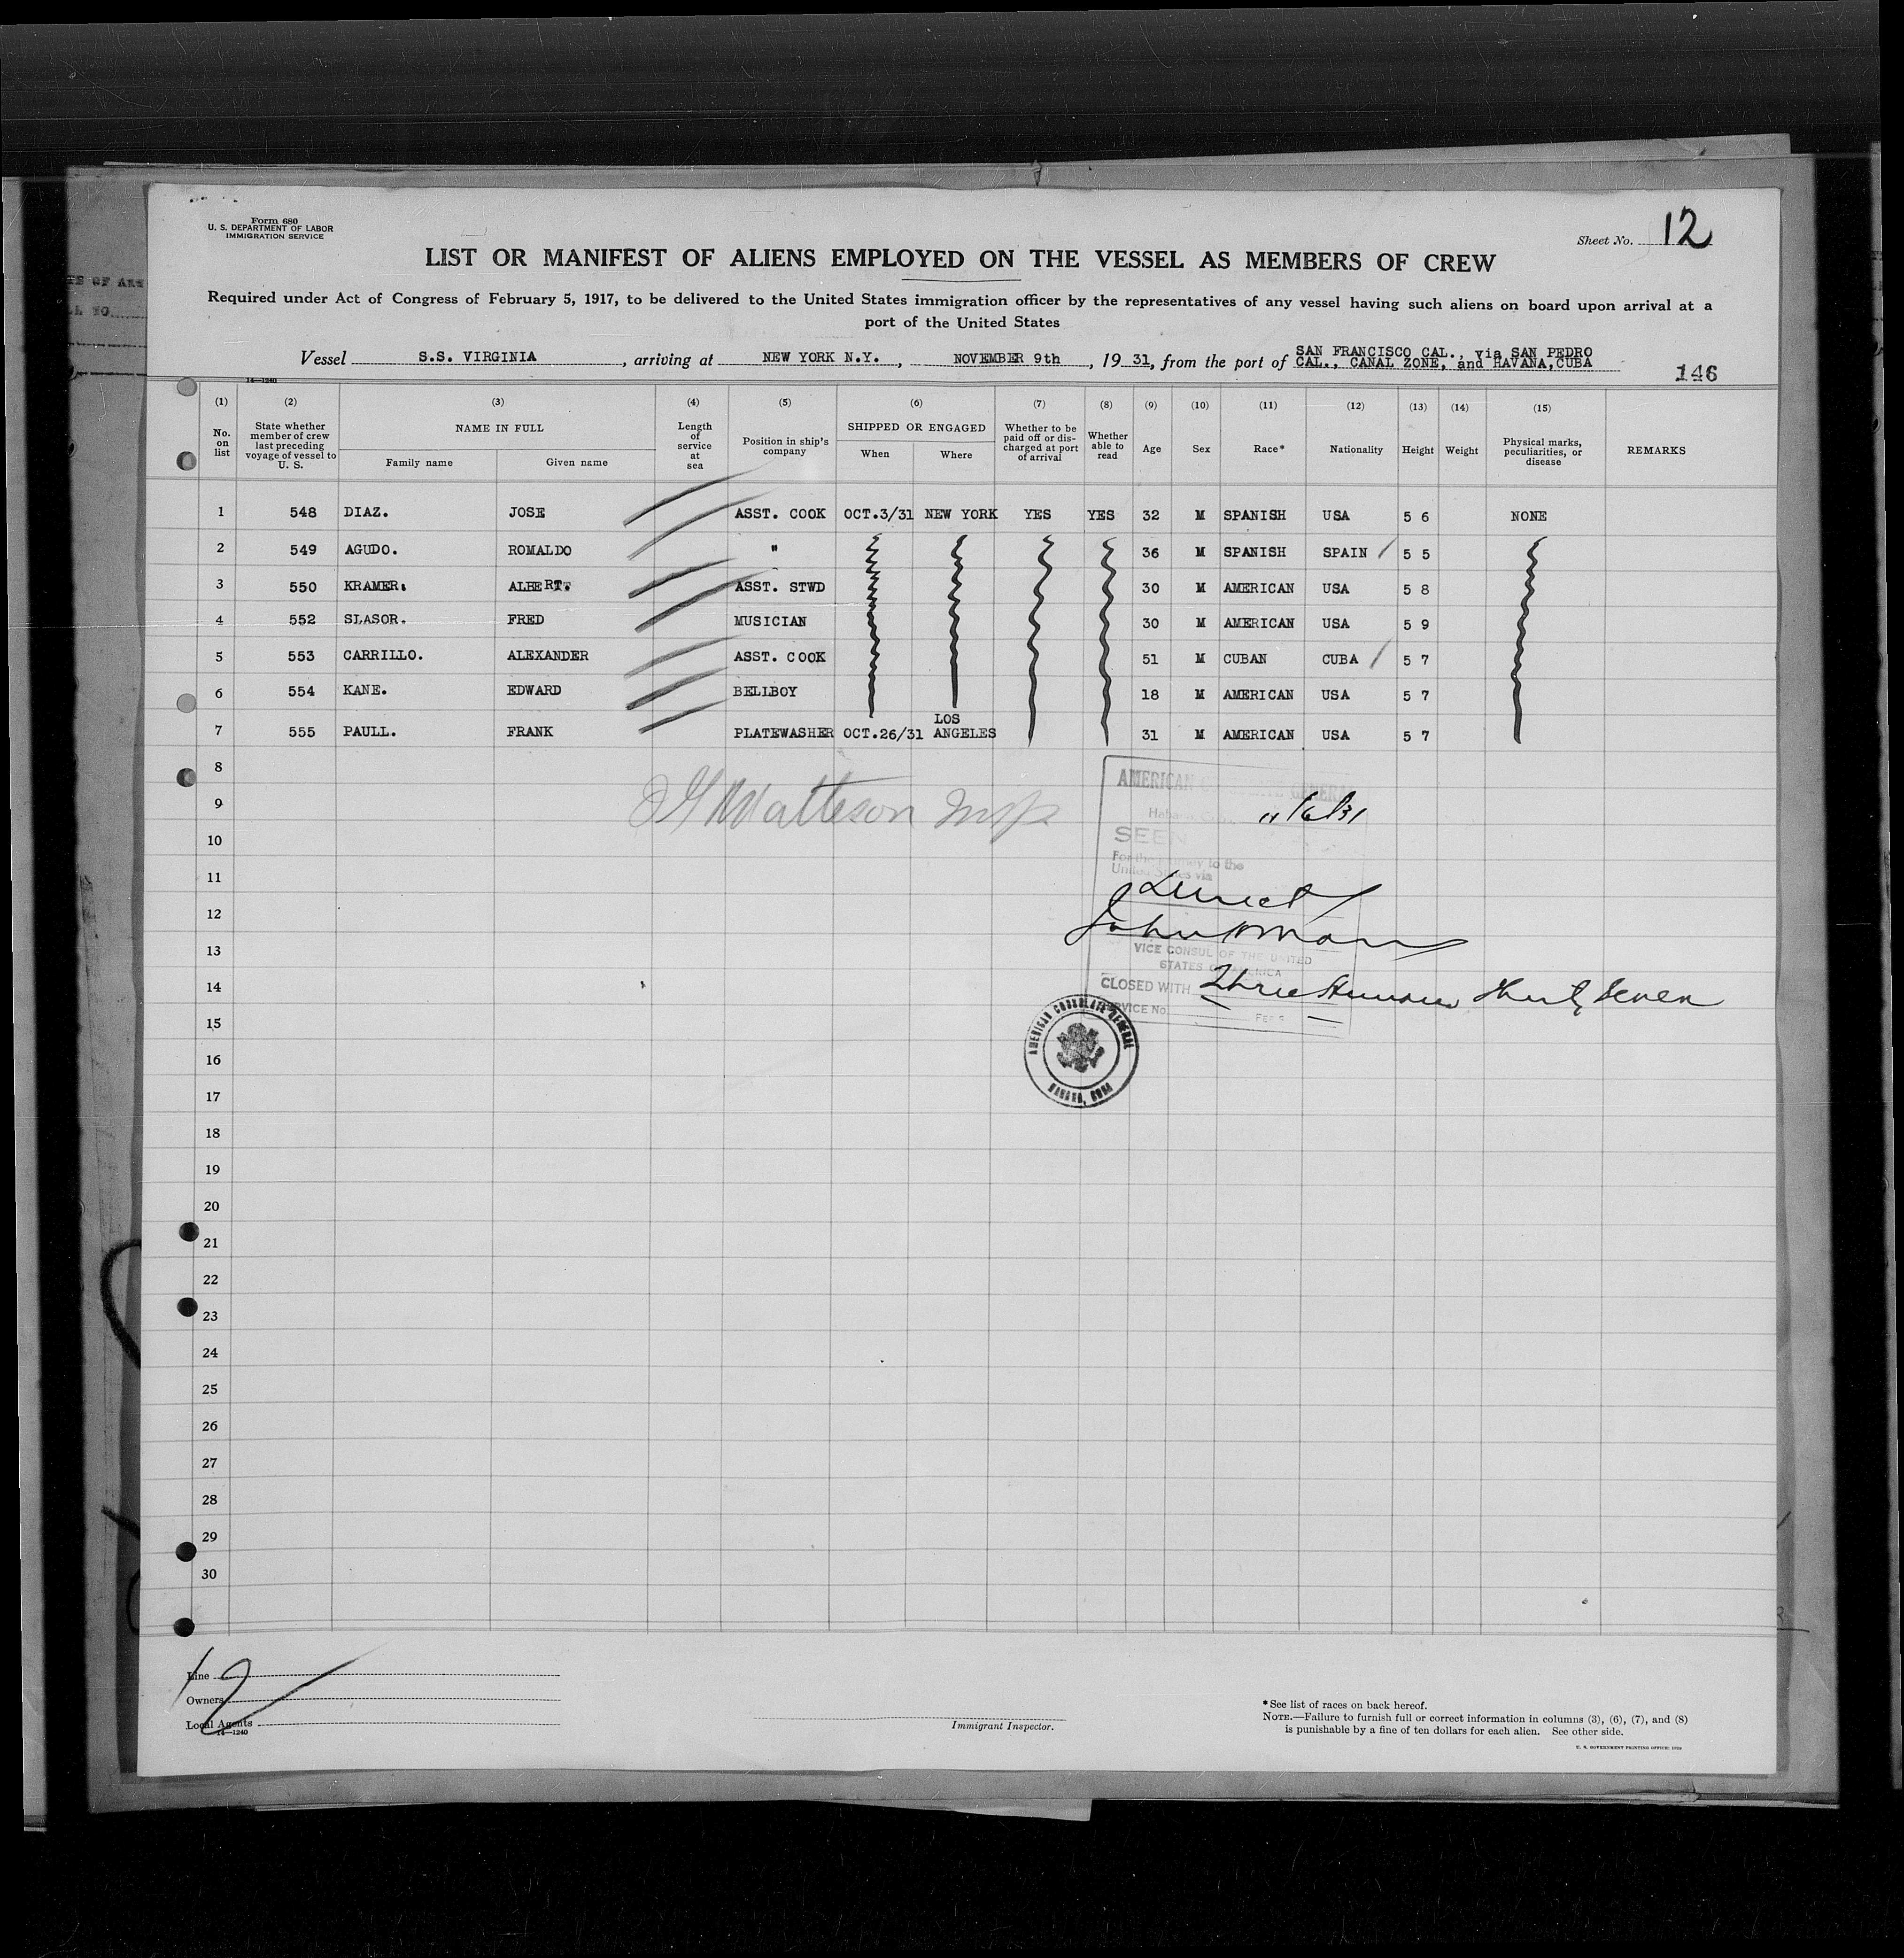 Form 680
U. S. DEPARTMENT OF LABOR
IMMIGRATION SERVICE
Sheet No. 12
LIST OR MANIFEST OF ALIENS EMPLOYED ON THE VESSEL AS MEMBERS OF CREW
Required under Act of Congress of February 5, 1917, to be delivered to the United States immigration officer by the representatives of any vessel having such aliens on board upon arrival at a
port of the United States
Vessel S.S. VIRGINIA, arriving at NEW YORK N.Y., NOVEMBER 9th, 19 31, from the port of SAN FRANCISCO CAL., via SAN PEDRO
CAL., CANAL ZONE, and HAVANA, CUBA
146
14—1240
(1) (2) (3) (4) (5) (6) (7) (8) (9) (10) (11) (12) (13) (14) (15)
No. on list
State whether member of crew last preceding voyage of vessel to U. S.
NAME IN FULL
Family name Given name
Length of service at sea
Position in ship's company
SHIPPED OR ENGAGED
When Where
Whether to be paid off or discharged at port of arrival
Whether able to read
Age Sex Race* Nationality Height Weight
Physical marks, peculiarities, or disease
REMARKS
1 548 DIAZ. JOSE ASST. COOK OCT.3/31 NEW YORK YES YES 32 M SPANISH USA 5 6 NONE
2 549 AGUDO. ROMALDO " 36 M SPANISH SPAIN / 5 5
3 550 KRAMER. ALBERT. ASST. STWD 30 M AMERICAN USA 5 8
4 552 SLASOR. FRED MUSICIAN 30 M AMERICAN USA 5 9
5 553 CARRILLO. ALEXANDER ASST. COOK 51 M CUBAN CUBA / 5 7
6 554 KANE. EDWARD BELLBOY 18 M AMERICAN USA 5 7
7 555 PAULL. FRANK PLATEWASHER OCT.26/31 LOS ANGELES 31 M AMERICAN USA 5 7
8
9
10
11
12
13
14
15
16
17
18
19
20
21
22
23
24
25
26
27
28
29
30
Matteson Insp.
AMERICAN CONSULATE GENERAL
11/6/31
SEEN
For the journey to the
United States via
Direct
VICE CONSUL OF THE UNITED
STATES OF AMERICA
CLOSED WITH Three Hundred Thirty Seven
SERVICE No.
AMERICAN CONSULATE GENERAL
HABANA, CUBA
12
Line
Owners
Local Agents
14—1240
Immigrant Inspector.
*See list of races on back hereof.
NOTE.—Failure to furnish full or correct information in columns (3), (6), (7), and (8)
is punishable by a fine of ten dollars for each alien. See other side.